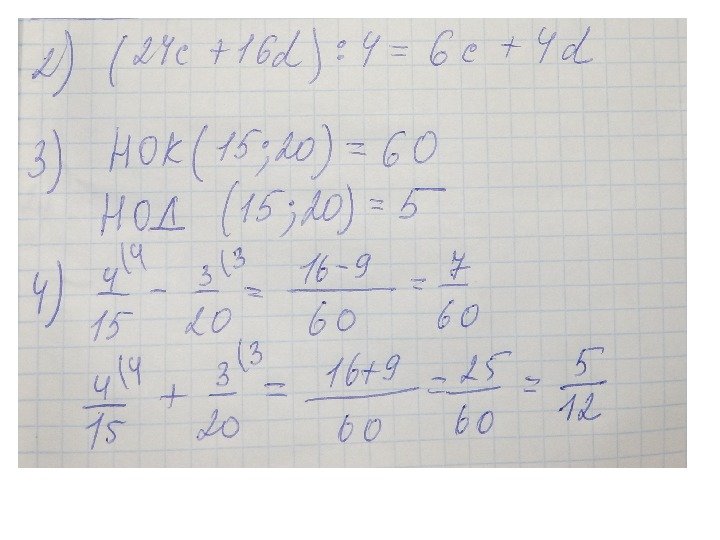 2) (24c + 16d) : 4 = 6c + 4d
3) НОК (15; 20) = 60
НОД (15; 20) = 5
4) 4/15 (4 - 3/20 (3 = 16-9/60 = 7/60
4/15 (4 + 3/20 (3 = 16+9/60 = 25/60 = 5/12